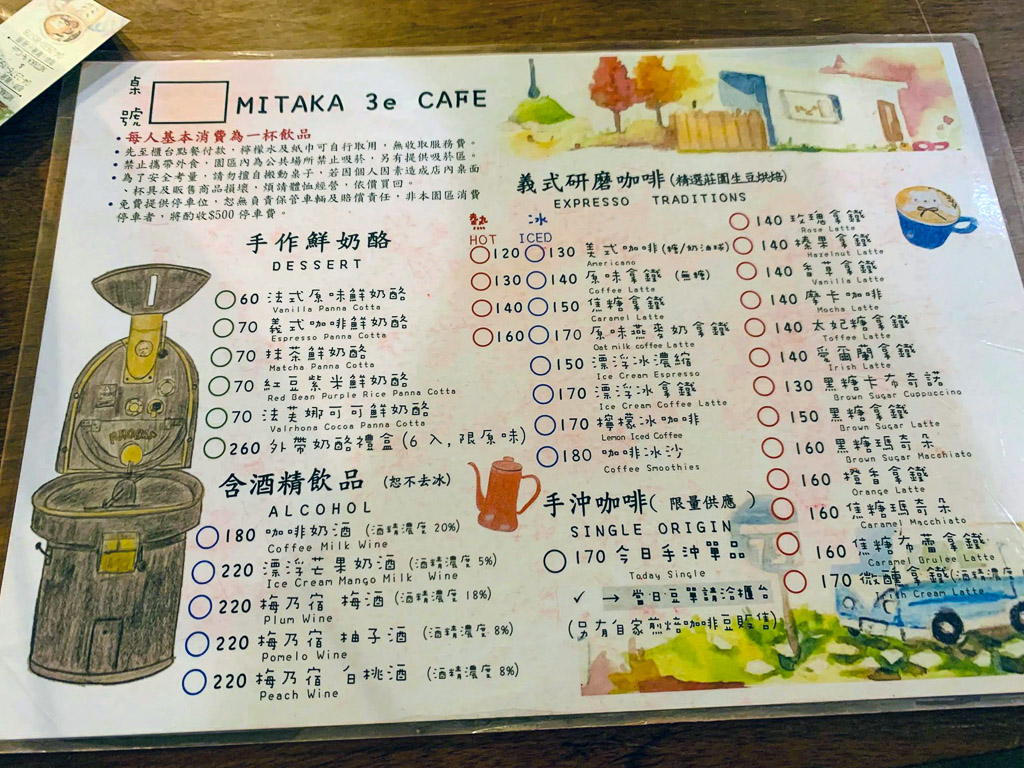 桌號
MITAKA 3e CAFE
•每人基本消費為一杯飲品
•先至櫃台點餐付款,檸檬水及紙巾可自行取用,無收取服務費。
•禁止攜帶外食,園區內為公共場所禁止吸菸,另有提供吸菸區。
•為了安全考量,請勿擅自搬動桌子,若因個人因素造成店內桌面
、杯具及販售商品損壞,煩請體恤經營,依價買回。
•免費提供停車位,恕無負責保管車輛及賠償責任,非本園區消費
停車者,將酌收$500 停車費。
手作鮮奶酪
DESSERT
60 法式原味鮮奶酪
Vanilla Panna Cotta
70 義式咖啡鮮奶酪
Espresso Panna Cotta
70 抹茶鮮奶酪
Matcha Panna Cotta
70 紅豆紫米鮮奶酪
Red Bean Purple Rice Panna Cotta
70 法芙娜可可鮮奶酪
Valrhona Cocoa Panna Cotta
260 外帶奶酪禮盒(6入,限原味)
含酒精飲品 (恕不去冰)
ALCOHOL
180 咖啡奶酒 (酒精濃度 20%)
Coffee Milk Wine
220 漂浮芒果奶酒 (酒精濃度 5%)
Ice Cream Mango Milk Wine
220 梅乃宿 梅酒 (酒精濃度 18%)
Plum Wine
220 梅乃宿 柚子酒 (酒精濃度 8%)
Pomelo Wine
220 梅乃宿 白桃酒 (酒精濃度 8%)
Peach Wine
義式研磨咖啡(精選莊園生豆烘焙)
EXPRESSO TRADITIONS
熱 冰
HOT ICED
120 130 美式咖啡(糖/奶油球)
Americano
130 140 原味拿鐵 (無糖)
Coffee Latte
140 150 焦糖拿鐵
Caramel Latte
160 170 原味燕麥奶拿鐵
Oat milk coffee Latte
150 漂浮冰濃縮
Ice Cream Espresso
170 漂浮冰拿鐵
Ice Cream Coffee Latte
170 檸檬冰咖啡
Lemon Iced Coffee
180 咖啡冰沙
Coffee Smoothies
140 玫瑰拿鐵
Rose Latte
140 榛果拿鐵
Hazelnut Latte
140 香草拿鐵
Vanilla Latte
140 摩卡咖啡
Mocha Latte
140 太妃糖拿鐵
Toffee Latte
140 愛爾蘭拿鐵
Irish Latte
130 黑糖卡布奇諾
Brown Sugar Cuppuccino
150 黑糖拿鐵
Brown Sugar Latte
160 黑糖瑪奇朵
Brown Sugar Macchiato
160 橙香拿鐵
Orange Latte
160 焦糖瑪奇朵
Caramel Macchiato
160 焦糖布蕾拿鐵
Caramel Brulee Latte
170 微醺拿鐵(酒精濃度
Irish Cream Latte
手沖咖啡( 限量供應 )
SINGLE ORIGIN
170 今日手沖單品
Today Single
✓ → 當日豆單請洽櫃台
(另有自家煎焙咖啡豆販售)